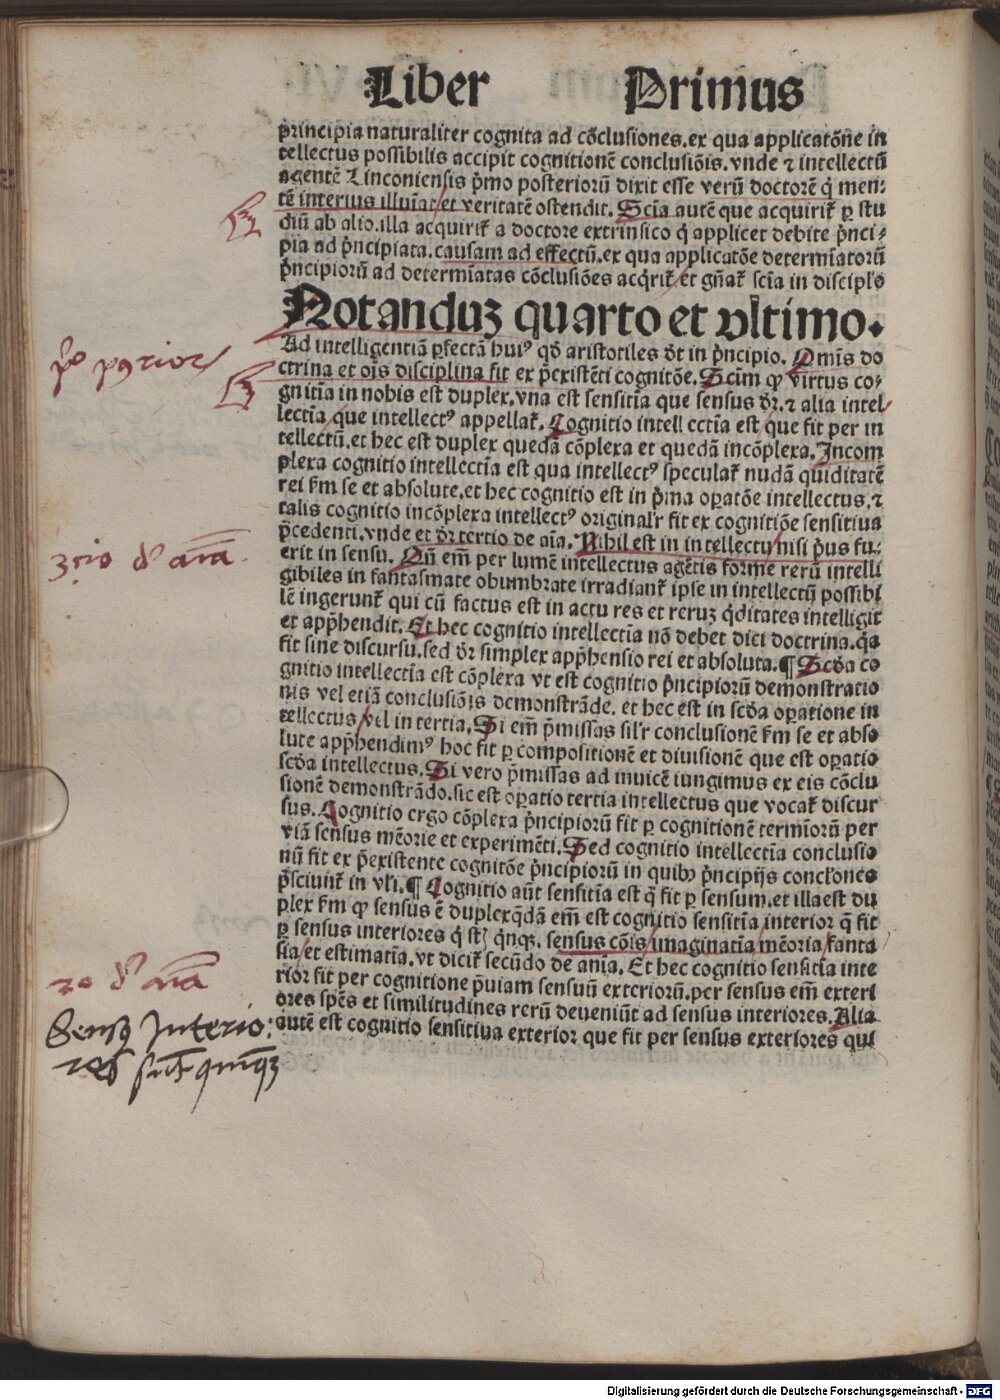 Liber Primus
principia naturaliter cognita ad cõclusiones.ex qua applicatõne in
tellectus possibilis accipit cognitionẽ conclusiõis.vnde ⁊ intellectũ
agentẽ Linconiensis p̃mo posteriorũ dixit esse verũ doctorẽ q̃ men⸗
tẽ interius illuĩat/et veritatẽ ostendit. Scĩa autẽ que acquirit᷑ ꝑ stu
diũ ab alio.illa acquirit᷑ a doctore extrinsico q̃ applicet debite p̃nci⸗
pia ad p̃ncipiata.causam ad effectũ.ex qua applicatõe determĩatorũ
p̃ncipiorũ ad determĩatas cõclusiões acq̃rit᷑/et gñat᷑ scĩa in discipl'o
Notanduꝫ quarto et vltimo.
Ad intelligentiã ꝑfectã huiꝰ qð aristotiles ðt in p̃ncipio. Omĩs do
ctrina et oĩs disciplina fit ex p̃existẽti cognitõe. Sciẽm ꝙ virtus co⸗
gnitĩa in nobis est duplex.vna est sensitĩa que sensus ðr.⁊ alia intel
lectĩa/que intellectꝰ appellat᷑. Cognitio intellectĩa est/que fit per in
tellectũ.et hec est duplex quedã cõplexa et quedã incõplexa. Incom
plexa cognitio intellectĩa est qua intellectꝰ speculat᷑ nudã quiditatẽ
rei ẜm se et absolute.et hec cognitio est in p̃ma oꝑatõe intellectus.⁊
talis cognitio incõplexa intellectꝰ original'r fit ex cognitiõe sensitiua
p̃cedenti.vnde et ðr tertio de aĩa. Nihil est in intellectu/nisi p̃us fu⸗
erit in sensu. Qñ em̃ per lumẽ intellectus agẽtis forme rerũ intelli
gibiles in fantasmate obumbrate irradiant᷑ ipse in intellectũ possibi
lẽ ingerunt᷑ qui cũ factus est in actu res et reruꝫ q̃ditates intelligit
et app̃hendit. Et hec cognitio intellectĩa nõ debet dici doctrina.q̃a
fit sine discursu.sed ðr simplex app̃hensio rei et absoluta. ¶ Scðа co
gnitio intellectĩa est cõplexa vt est cognitio p̃ncipiorũ demonstratio
nis vel etiã conclusiõis demonstrãde. et hec est in scða oꝑatione in
tellectus/vel in tertia. Si em̃ p̃missas sil'r conclusionẽ ẜm se et abso
lute app̃hendimꝰ hoc fit ꝑ compositionẽ et diuisionẽ que est oꝑatio
scða intellectus. Si vero p̃missas ad inuicẽ iungimus ex eis cõclu
sionẽ demonstrãdo.sic est oꝑatio tertia intellectus que vocat᷑ discur
sus. Cognitio ergo cõplexa p̃ncipiorũ fit ꝑ cognitionẽ termĩorũ per
viã sensus mẽorie et experimẽti. Sed cognitio intellectĩa conclusio
nũ fit ex p̃existente cognitõe p̃ncipiorũ in quibꝰ p̃ncipijs concl'ones
p̃sciunt᷑ in vl'i. ¶ Cognitio aũt sensitĩa est q̃ fit ꝑ sensum.et illaest du
plex ẜm ꝙ sensus ẽ duplexq̃dã em̃ est cognitio sensitĩa interior q̃ fit
ꝑ sensus interiores q̃ st̃ q̃nqꝫ. sensus cõis/imaginatĩa/mẽoria/fanta
sia/et estimatĩa.vt dicit᷑ secũdo de anĩa. Et hec cognitio sensitĩa inte
rior fit per cognitione p̃uiam sensuũ exteriorũ.per sensus em̃ exteri
ores sp̃es et similitudines rerũ deueniũt ad sensus interiores. Alia
autẽ est cognitio sensitiua exterior que fit per sensus exteriores qui
pº p9rior
3cio dᵉ aĩa
2o dᵉ aĩa
Sensꝰ Interio⸗
res sũt quinqꝫ
Digitalisierung gefördert durch die Deutsche Forschungsgemeinschaft - DFG